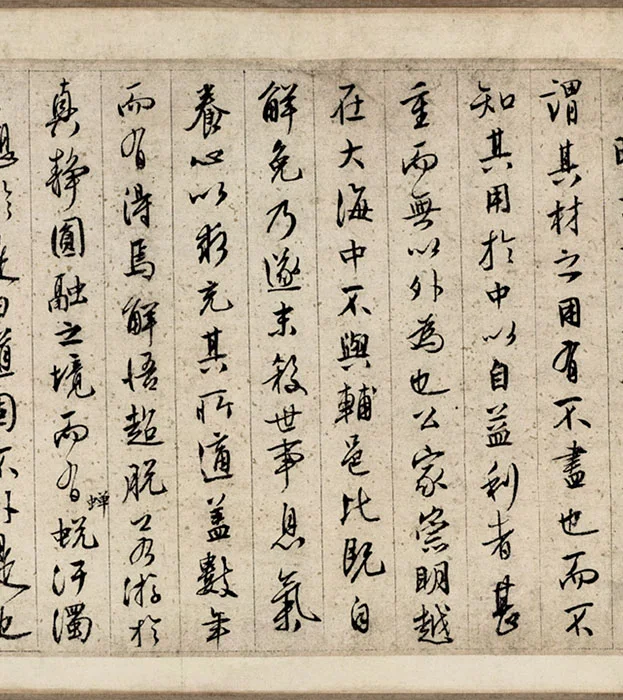 謂其材之用有不盡也而不
知其用於中以自益利者甚
重而無以外為也公家崇明越
在大海中不與輔邑比既自
解免乃遂末殺世事息氣
養心以求充其所適蓋數年
而有得焉解悟超脫若游於
真靜圓融之境而有蟬蛻汙濁
道固不外是也